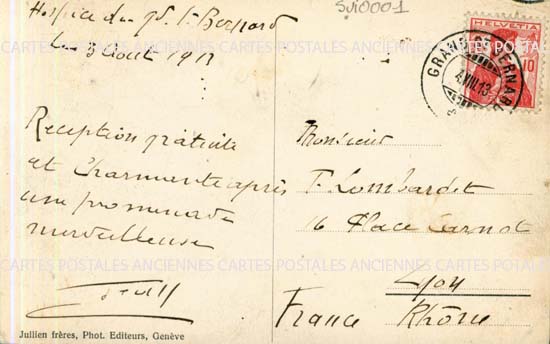 Hospice du Gd St Bernard
le 3 Aout 1913
SVI0001
HELVETIA
10
GRAND ST BERNARD
4.VIII.13
Reception gratuite
et Charmante après
une promenade
merveilleuse
Monsieur
F. Lombardet
16 Place Carnot
Lyon
France Rhône
Jullien frères, Phot. Editeurs, Genève
CARTES POSTALES ANCIENNES CARTES POSTALES ANCIENNES CARTES POSTALES ANCIENNES